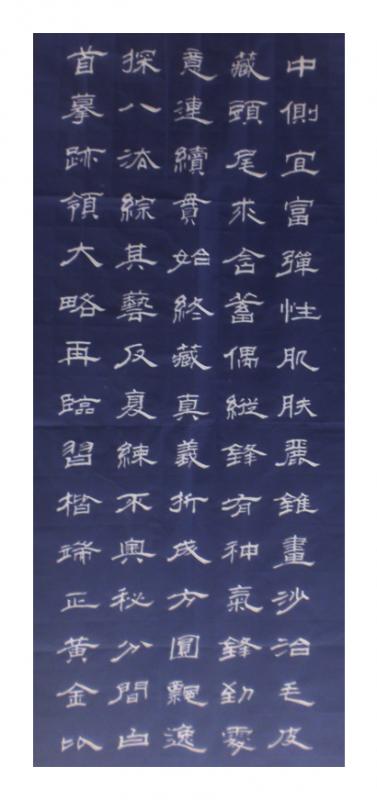 中側宜富彈性肌膚麗錐畫沙治毛皮
藏頭尾求含蓄偶縱鋒有神氣鋒勁處
意連續貫始終藏真義折成方圓飄逸
探八法綜其藝反复練不奧秘分間白
首摹跡領大略再臨習楷端正黃金以